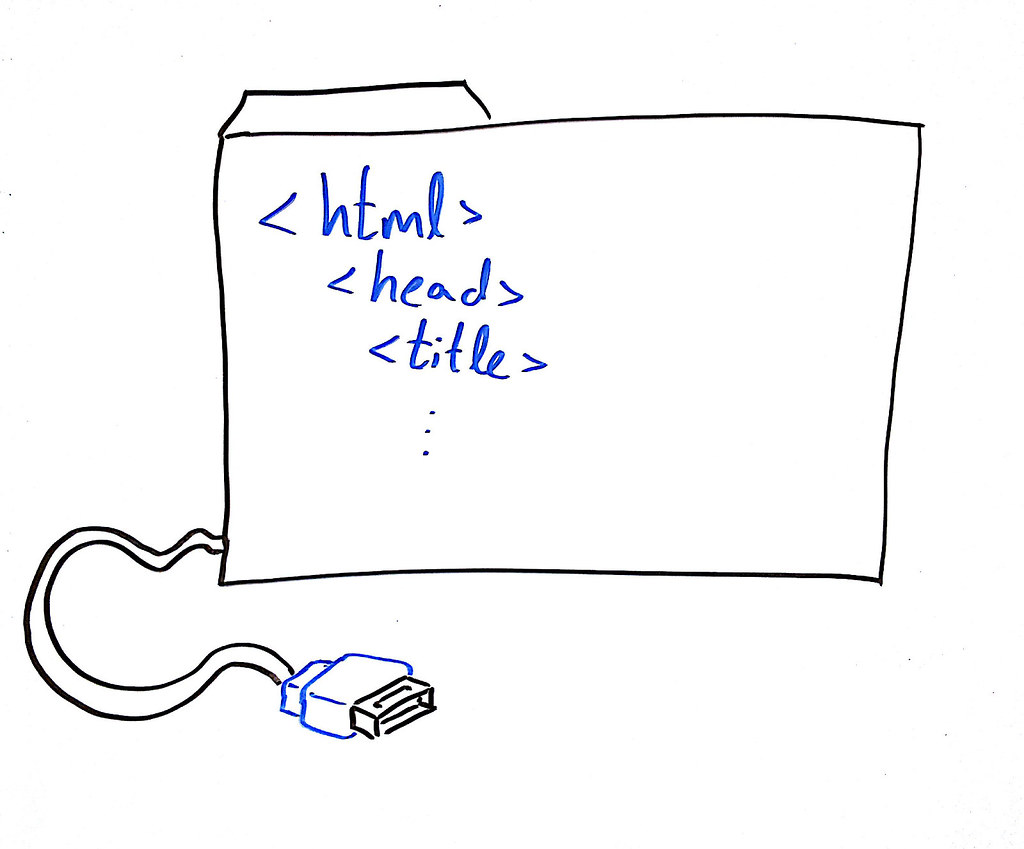 <html>
<head>
<title>
⋮